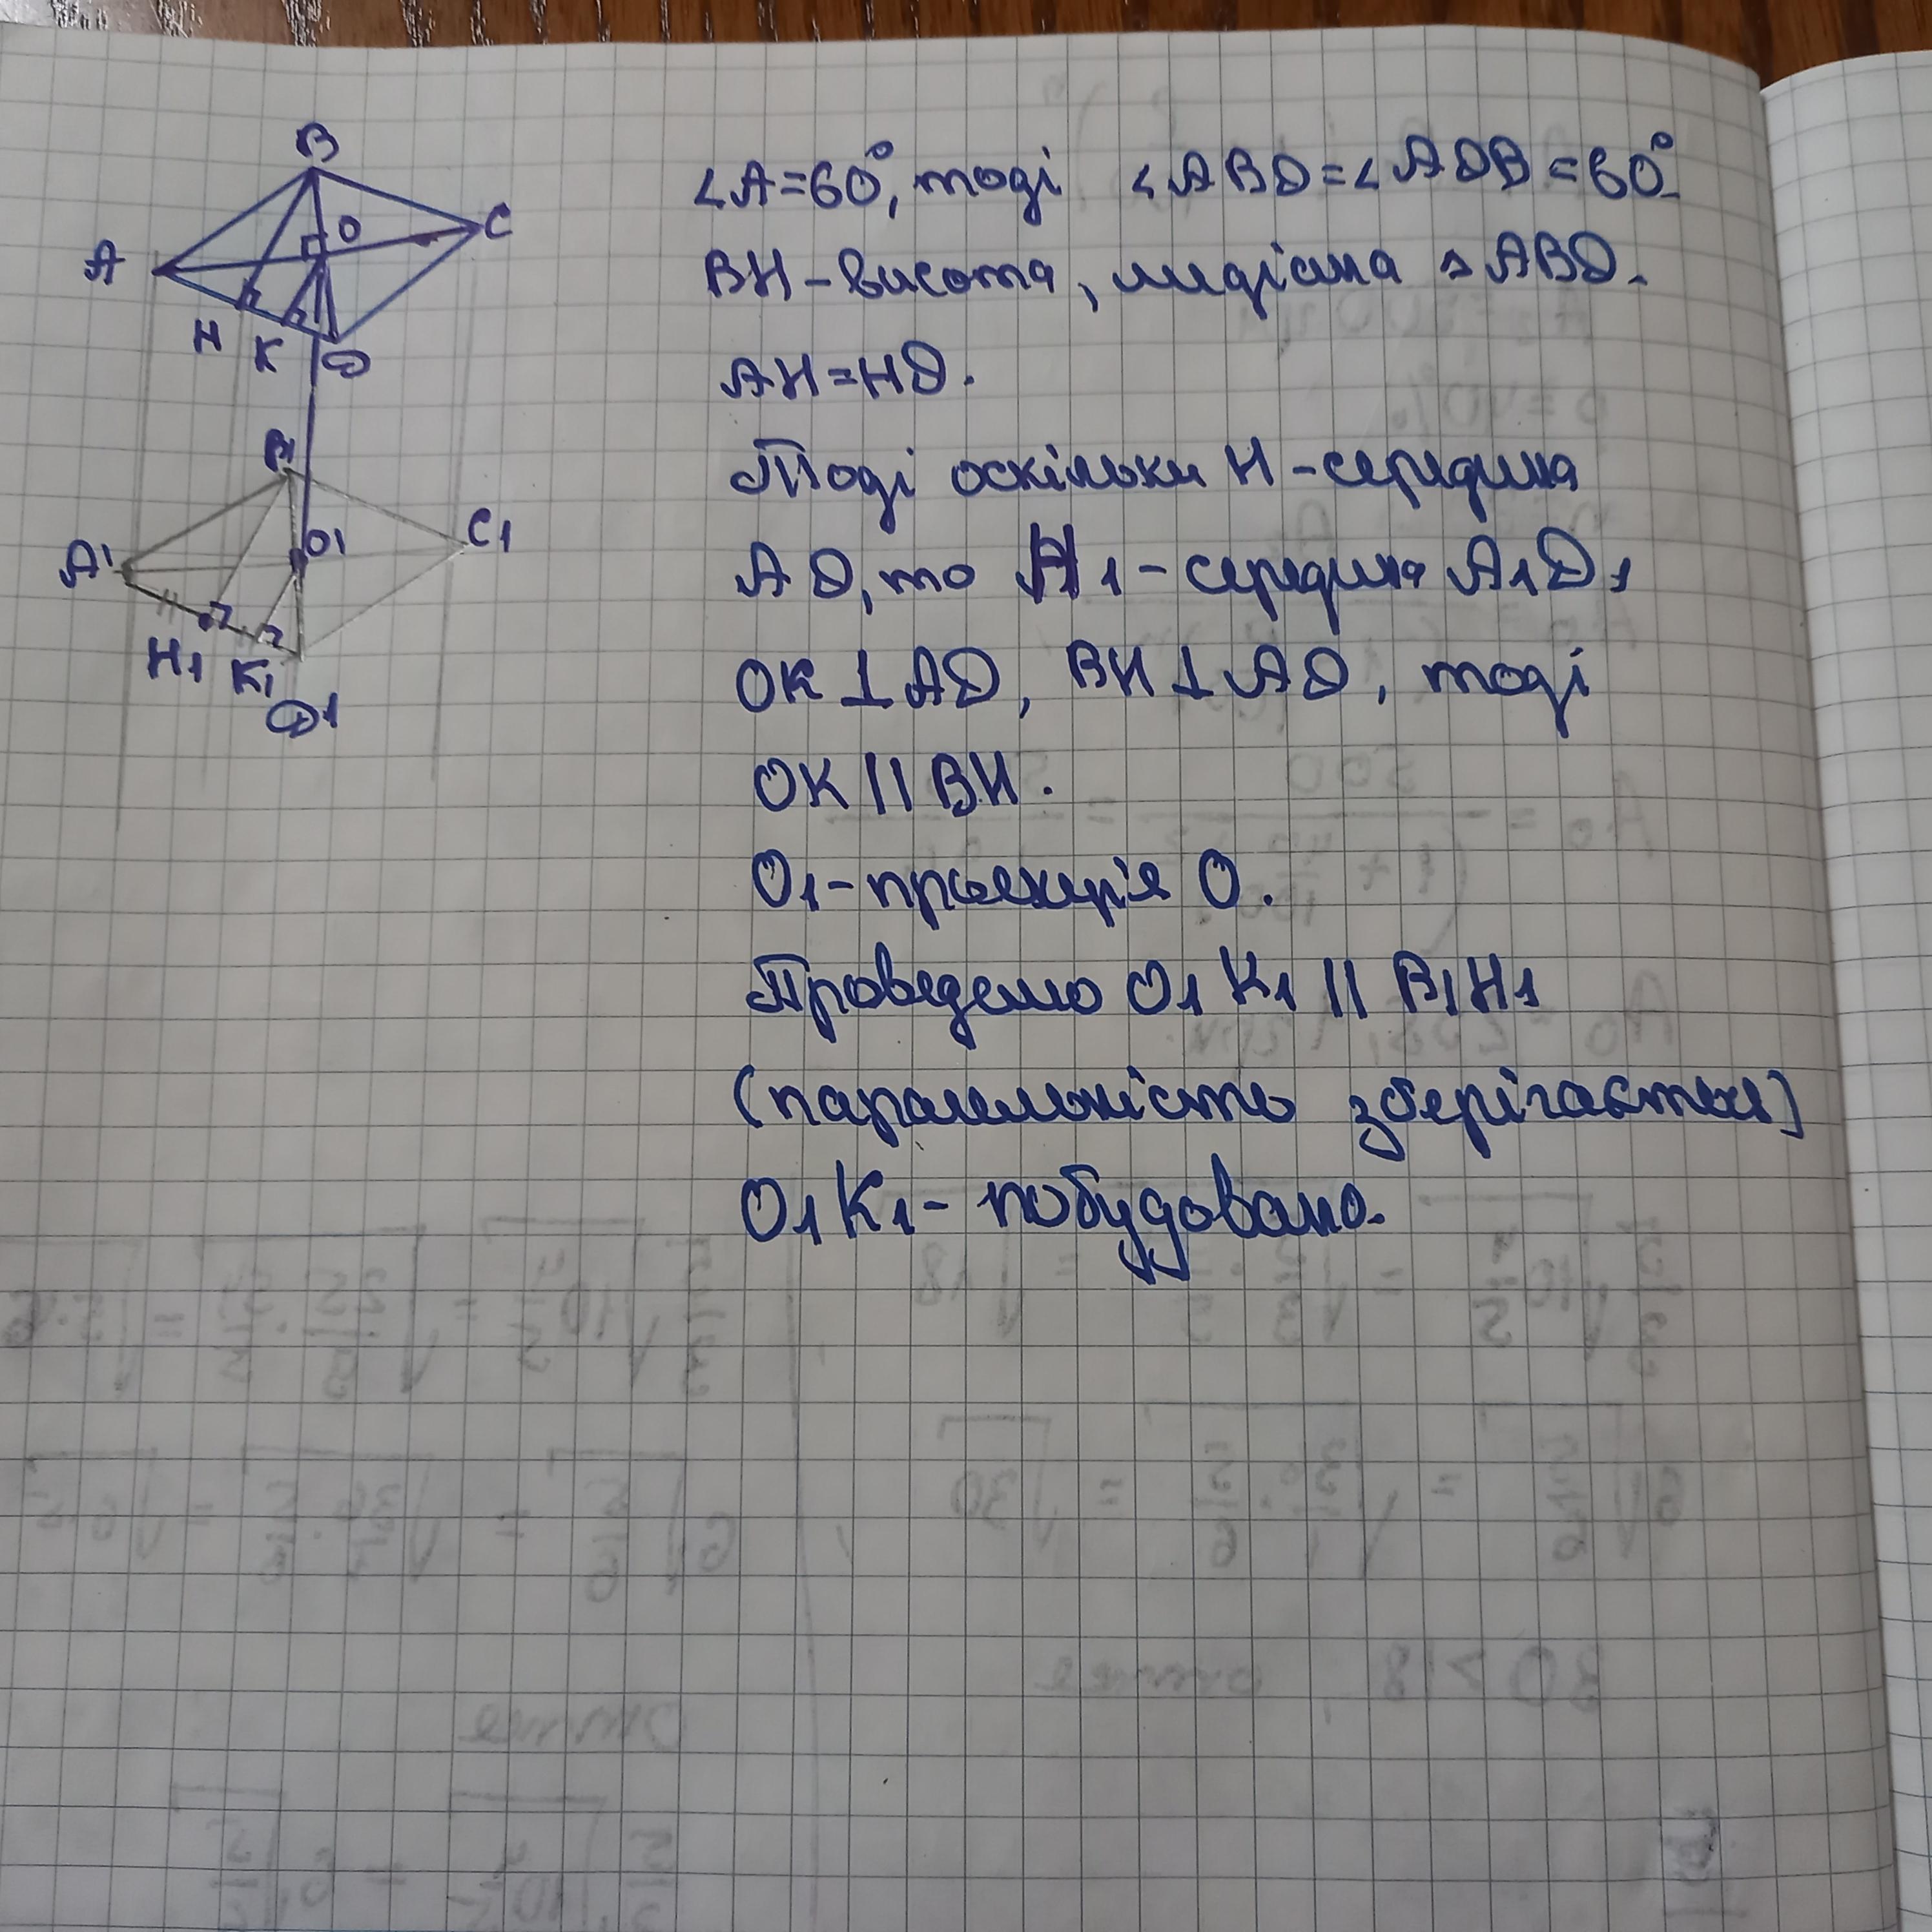 B
O
C
A
H
K
D
B1
O1
C1
A1
H1
K1
D1
∠A=60°, тоді ∠ABD=∠ADB=60°
BH-висота, медіана △ABD.
AH=HD.
Тоді оскільки H-середина
AD, то H1-середина A1D1
OK⊥AD, BH⊥AD, тоді
OK || BH.
O1-проекція O.
Проведемо O1K1 || B1H1
(паралельність зберігається)
O1K1- побудовано.